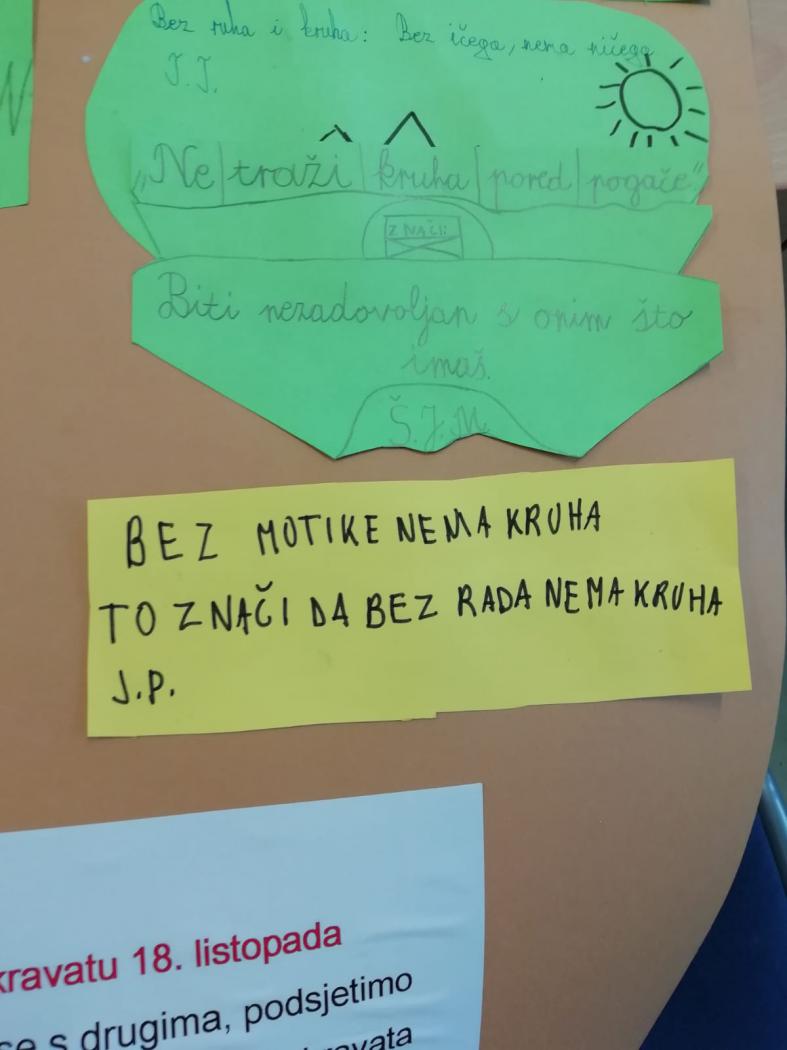 Bez ruha i kruha: Bez ičega, nema ničega
J.J.
„Ne traži kruha pored pogače"
ZNAČI:
Biti nezadovoljan s onim što
imaš.
Š.J.M.
BEZ MOTIKE NEMA KRUHA
TO ZNAČI DA BEZ RADA NEMA KRUHA
J.P.
kravatu 18. listopada
s drugima, podsjetimo